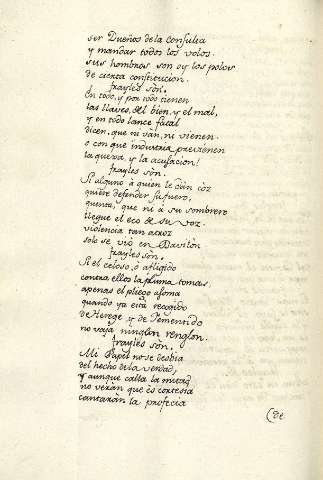 ser Dueños de la Consulta
y mandar todos los votos.
sus hombros son oy los polos
de cierta constitucion.
frayles son.
En todo, y por todo tienen
las llaves, del bien, y el mal,
y en todo lance fatal
dicen, que ni van, ni vienen.
o con que industria previenen
la quexa, y la acusacion!
frayles son.
Si alguno a quien le dan coz
quiere defender su fuero,
que ni a su sombrero
llegue el eco de su voz.
violencia tan atroz
solo se vió en Bavilon
frayles son.
Si el celoso, ó afligido
contra ellos la pluma tomas,
apenas el pliego asoma
quando ya està recogido
de Herege y de fementido
no vaya ningun renglon.
frayles son.
Mi Papel no se desbia
del hecho de la verdad,
y aunque calla la mitad
no veràn que es cortesia
cantaràn la profecia
(de